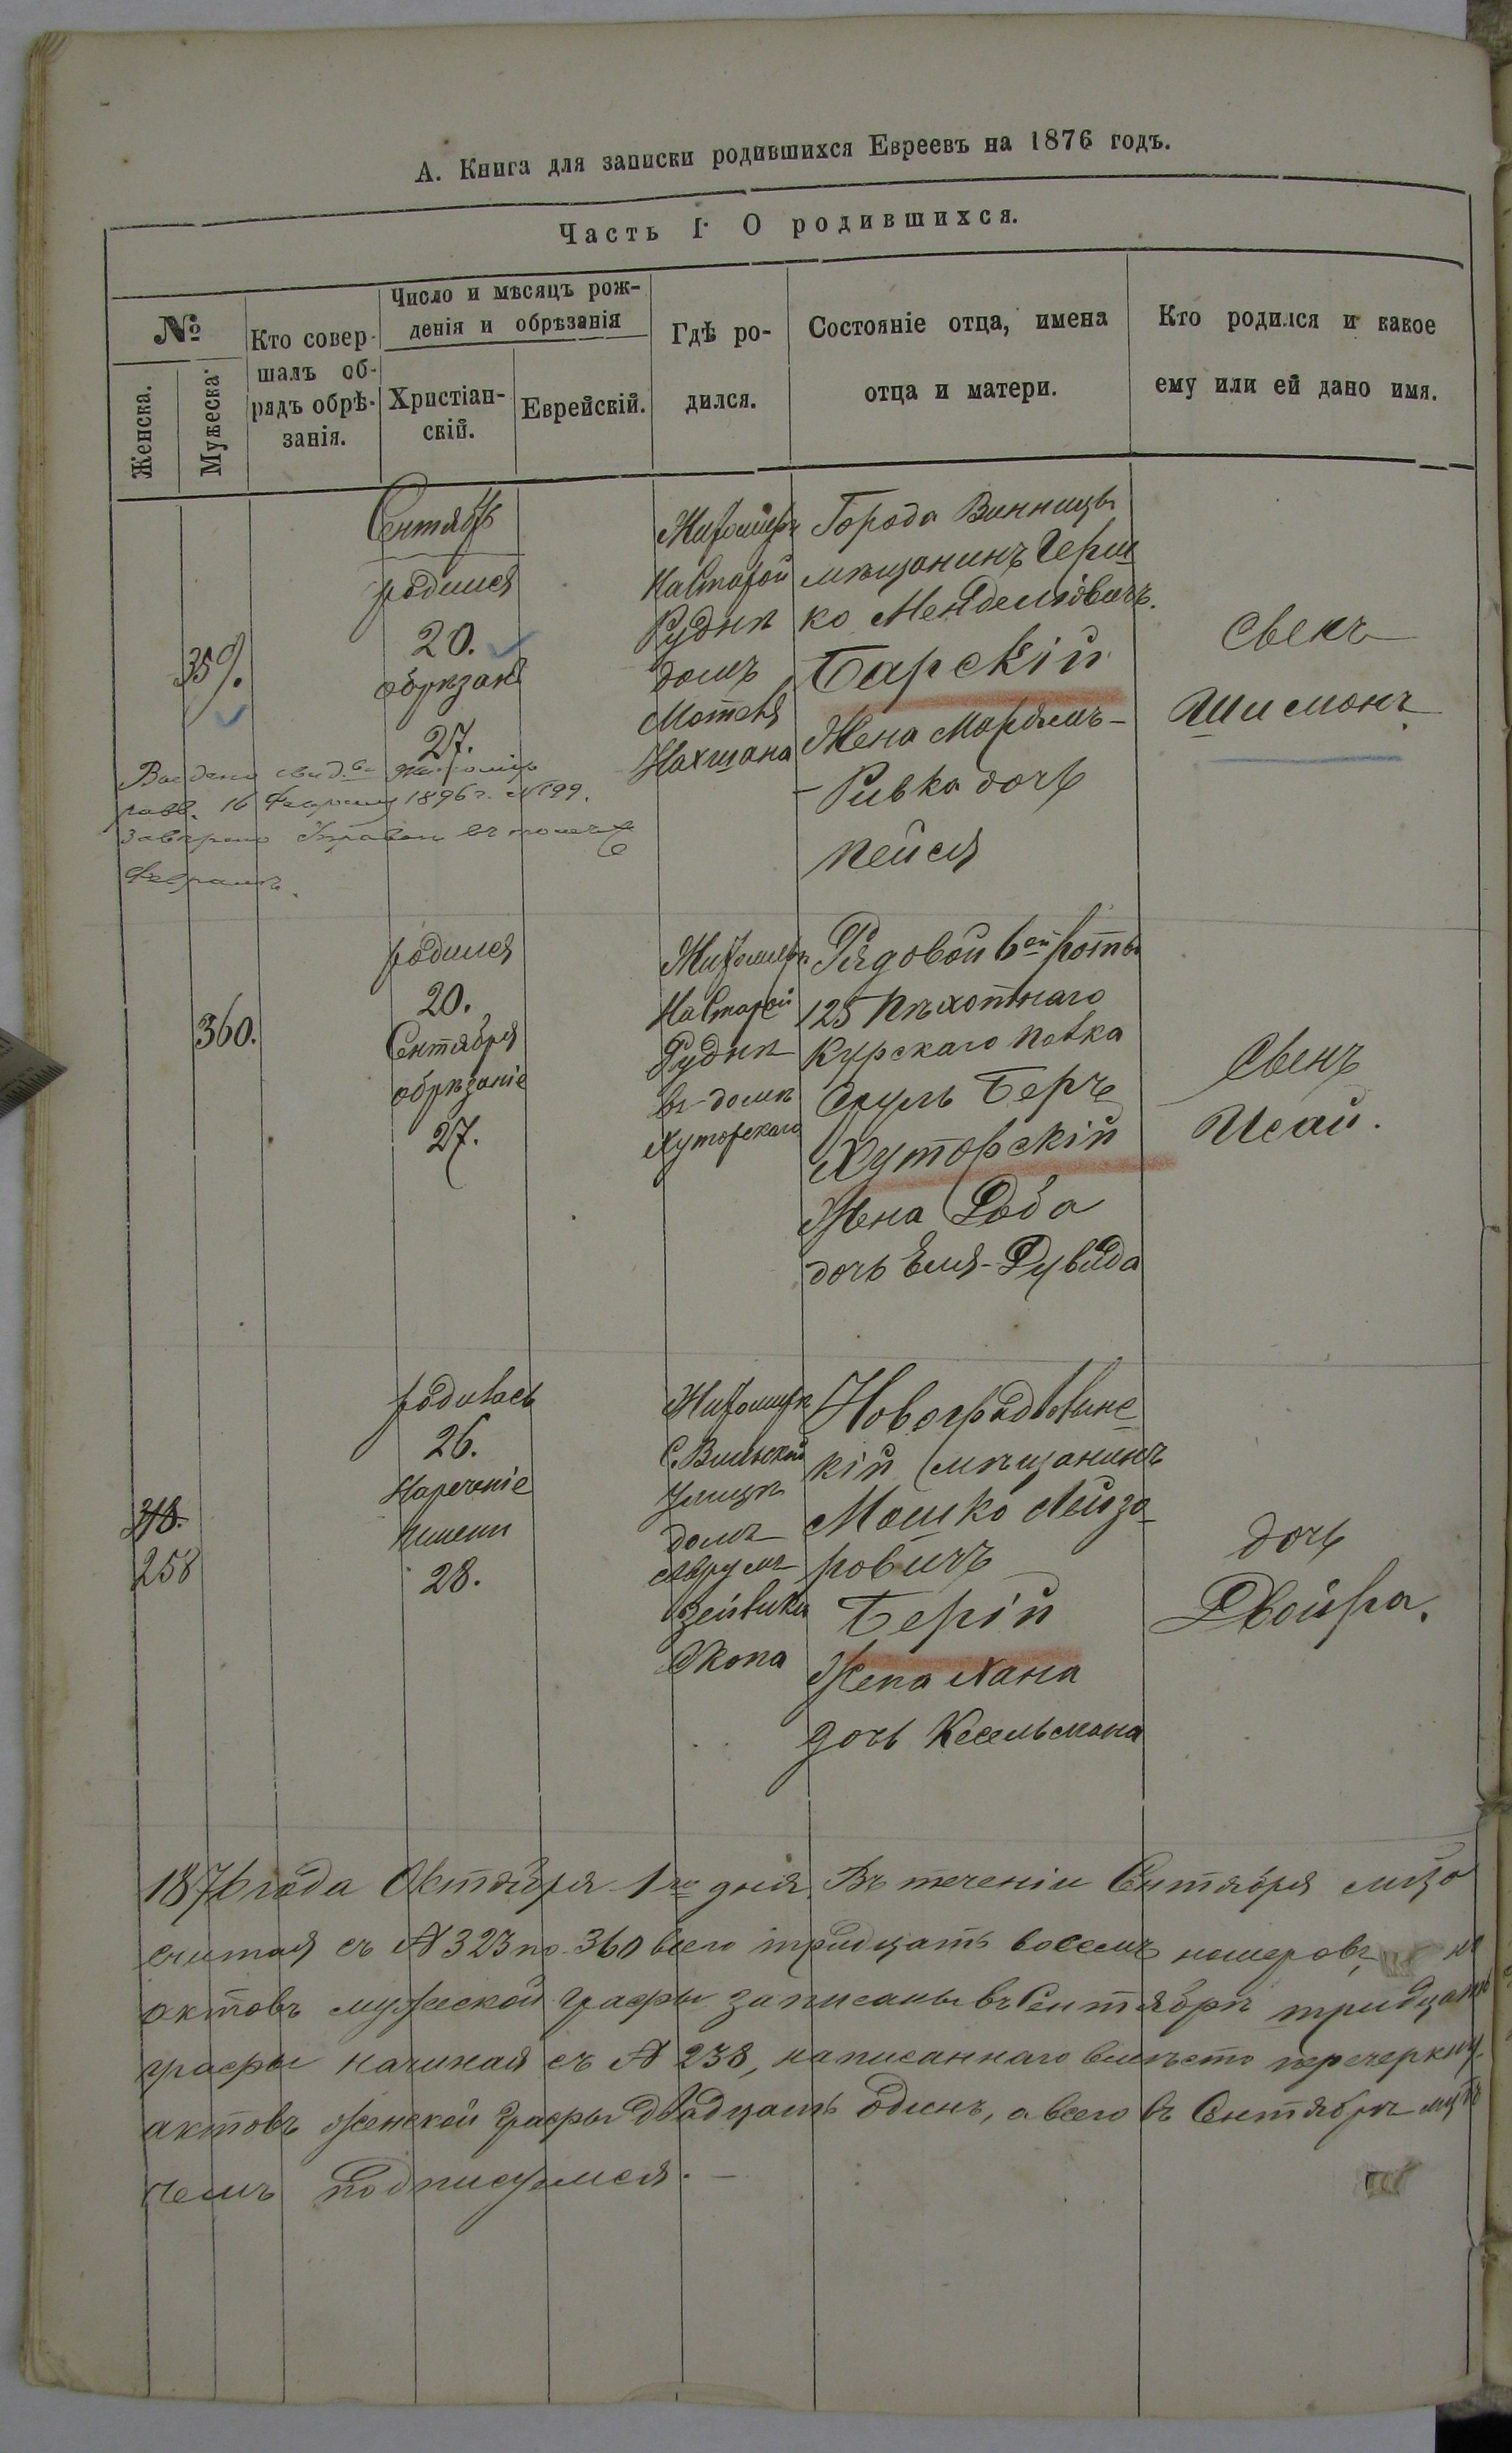 А. Книга для записки родившихся Евреевъ на 1876 годъ.
Часть I. О родившихся.
№
Женска.
Мужеска.
Кто совер-
шалъ об-
рядъ обрѣ-
занія.
Число и мѣсяцъ рож-
денія и обрѣзанія
Христіан-
скій.
Еврейскій.
Гдѣ ро-
дился.
Состояніе отца, имена
отца и матери.
Кто родился и какое
ему или ей дано имя.
359.
Сентябрь
родился
20.
обрѣзанъ
27.
Житомиръ
На Старой
Руднѣ
домъ
Мотеля
Города Винницы
мѣщанинъ Герш
ко Менделіовичъ
Барскій
Жена Марьямъ-
-Ривка дочь
Пейся
Свенъ
Шимонъ
16 1896 г. №199.
360.
родился
20.
Сентября
обрѣзаніе
27.
Житомиръ
На Старой
Руднѣ
въ домѣ
Хуторскаго
Рядовой 6ой роты
125 Пѣхотнаго
Курскаго Полка
Сруль Беръ
Хуторскій
Жена Доба
дочь Еля-Дувида
Свенъ
Исай.
318.
258
родилась
26.
Нареченіе
имени
28.
Житомиръ
С. Вильской
улицѣ
домъ
Аврумъ
Зейвика
Новоградволинс
кій мѣщанинъ
Мошко Лейзо-
ровичъ
Берій
Жена Хана
дочь Кесельмана
дочь
Двойра.
1876 года Октября 1го дня, Въ теченіи Сентября
считая съ № 323 по 360 всего тридцать восемъ номеровъ
актовъ мужеской графы записаны въ Сентябрѣ тридцать
графы начиная съ № 238, написаннаго вмѣсто перечеркну
актовъ женской графы двадцать одинъ, а всего въ Сентябрѣ
чемъ подписуемся. —